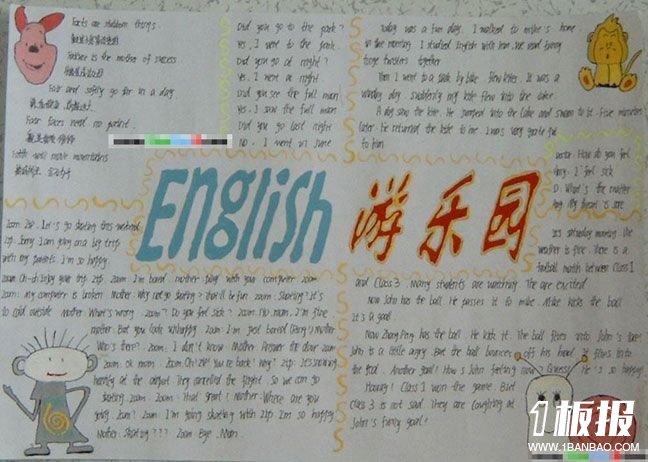 Facts are stubborn things.
Failure is the mother of success
Fair and softly go far in a day.
Fair faces need no paint.
Faith will move mountains
Did you go to the park?
Yes, I went to the park.
Did you go at night?
Yes, I went at night.
Did you see the full moon
Yes, I saw the full moon
Did you go last night
No, I went in June
Today was a fun day. I walked to Mike's home
in the morning. I studied English with him. We read funny
tongue twisters together
Then I went to a park by bike. flew kites. It was a
windy day. Suddenly my kite flew into the lake.
A dog saw the kite. He jumped into the lake and swam to it. Five minutes
later. He returned the kite to me. I was very grateful
to him
English 游乐园
Doctor. How do you feel
Amy. I feel sick
D. What's the matter
Amy. My throat is sore
Zoom. Zip. Let's go skating this weekend
Zip. Sorry. I am going on a big trip
with my parents. I'm so happy.
Zoom. Oh-oh. Enjoy your trip. Zip. Zoom. I'm bored. Mother. play with your computer. Zoom
Zoom. my computer is broken. Mother. Why not go skating? It'll be fun. Zoom. Skating? It's
too cold outside. Mother. What's wrong. Zoom? Do you feel sick? Zoom. No mom. I'm fine
mother. But you look unhappy. Zoom. I'm just bored (Ding) Mother.
Who's there? Zoom. I don't know. Mother. Answer the door Zoom
Zoom. Ok mom. Zoom. Oh! Zip! You're back! Why? Zip. It's snowing
heavily at the airport. They cancelled the flight. So we can go
skating Zoom. Zoom. That great! Mother. Where are you
going. Zoom? Zoom. I'm going skating with Zip. I'm so happy
Mother. Skating??? Zoom. Bye. Mom.
It's Saturday morning. The
weather is fine. There is a
football match between Class 1
and Class 3. Many students are watching. They are excited.
Now John has the ball. He passes it to Mike. Mike kicks the ball
It's a goal.
Now Zhang Peng has the ball. He kicks it. The ball flies into John's face.
John is a little angry. But the ball bounces off his head & flies into
the goal. Another goal! How is John feeling now? Guess! He's so happy!
Hooray! Class 1 won the game. But
Class 3 is not sad. They are laughing at
John's funny goal!
1板报
WWW.1BANBAO.COM